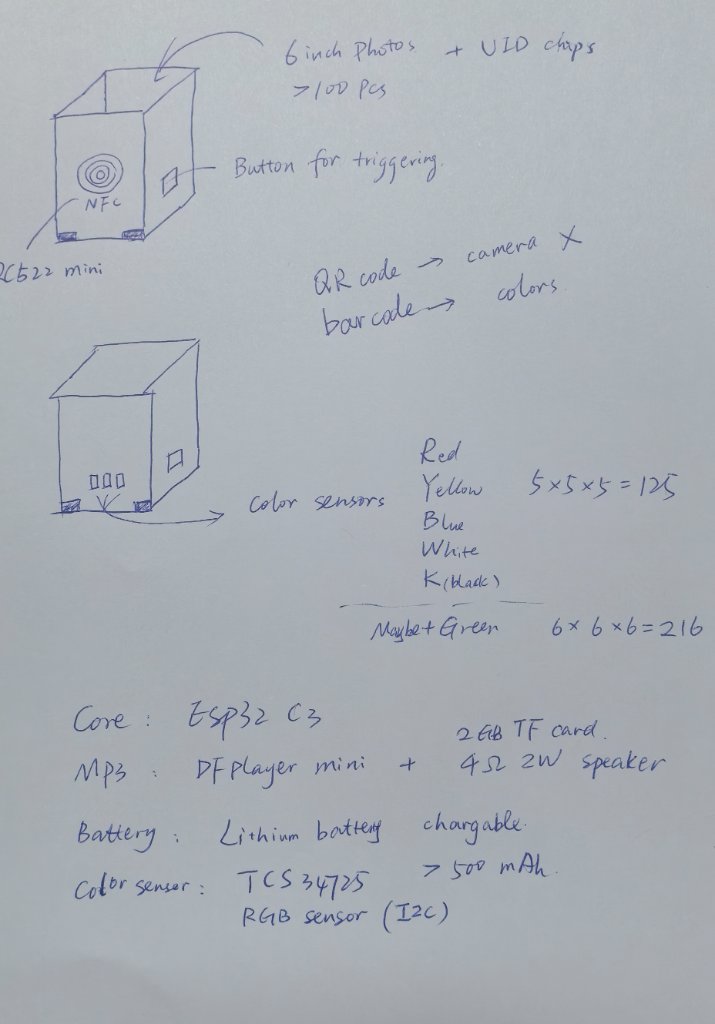 6 inch Photos + UID chips
>100 Pcs
Button for triggering.
NFC
RC522 mini
QR code → camera X
bar code → colors.
Red
Yellow 5×5×5=125
Color sensors
Blue
White
K(black)
Maybe+Green 6×6×6=216
Core: Esp32 C3
2GB TF card.
MP3: DFplayer mini + 4Ω 2W speaker
Battery: Lithium battery chargable.
>500 mAh.
Color senser: TCS34725
RGB sensor (I2C)